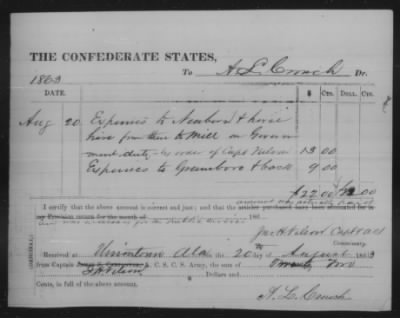 THE CONFEDERATE STATES,
To A. L. Crouch Dr.
1863
DATE. $ Cts. Doll. Cts.
Aug 20 Expenses to Newbern & horse
hire from there to Mill on Govern
ment duty - by order of Capt Nelson 13 00
Expenses to Greensboro & back 9 00
$22.00 00
amount was actually paid
I certify that the above account is correct and just; and that the articles purchased have been accounted for in
my Provision return for the month of 186
and was necessary for the public service
Jas H Nelson Capt & ACS
Commissary.
Received at Uniontown Ala the 20 of August 1863
from Captain C. S. C. S. Army, the sum of Twenty two
J H Nelson Dollars and
Cents, in full of the above account.
A. L. Crouch